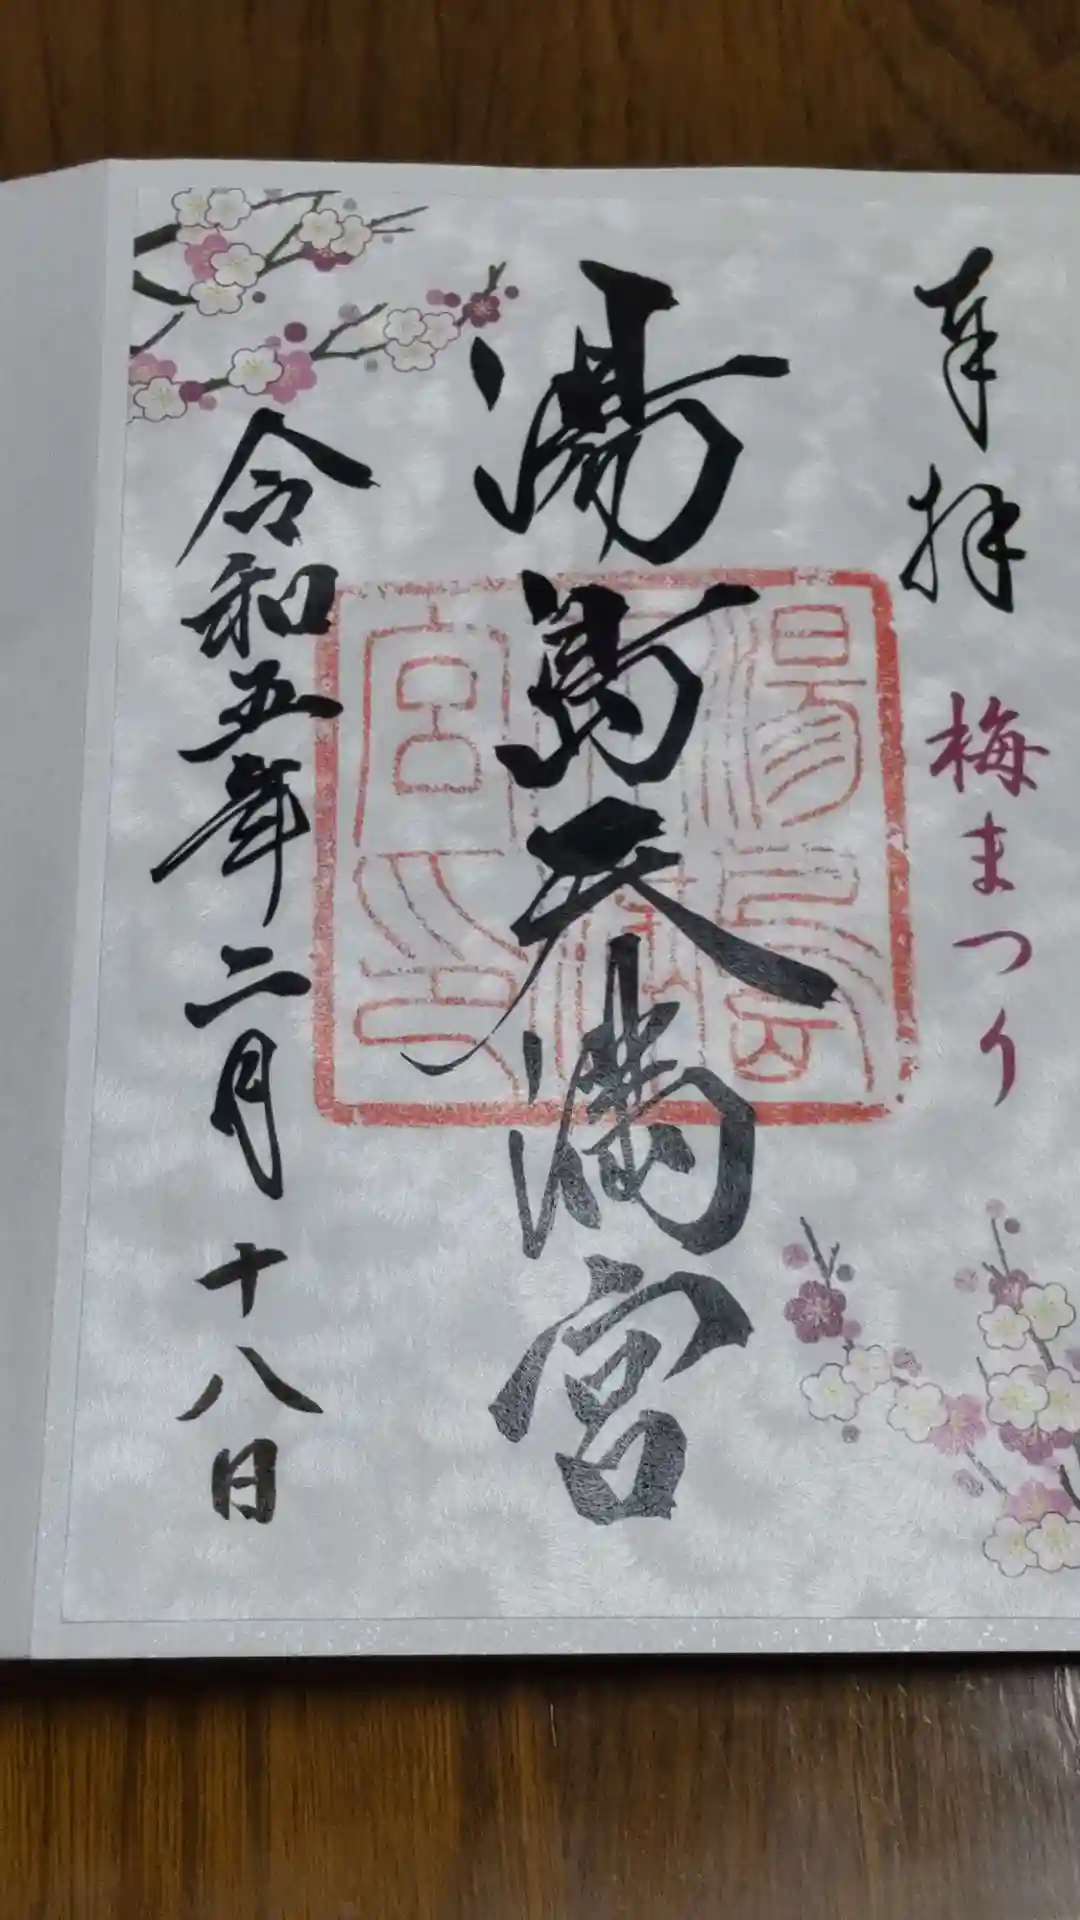 奉拝 梅まつり
湯島天満宮
令和五年二月十八日